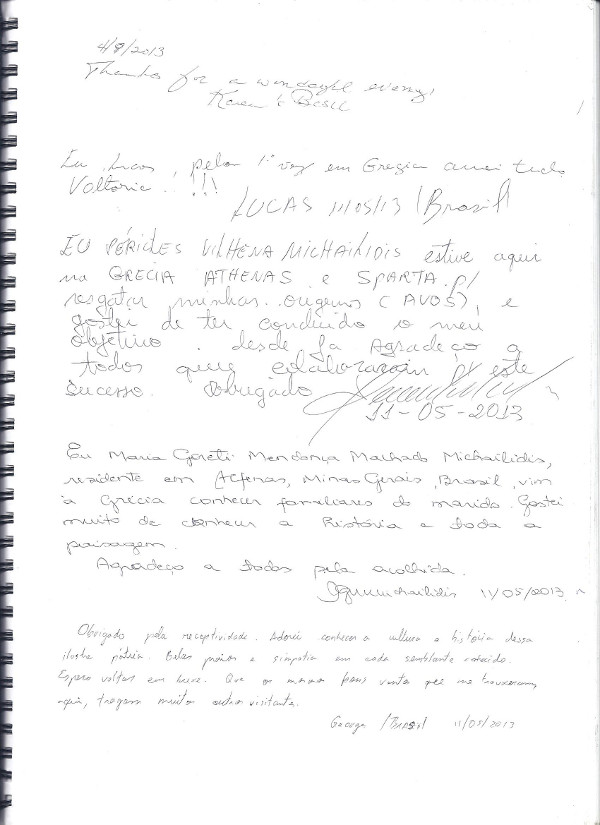 4/8/2013
Thanks for a wonderful evening,
Karen &
Eu Lucas, pela 1ª vez em Grecia amei tudo
Voltaria...!!!
LUCAS 11/05/13 (Brasil)
EU PÉRICLES VILHENA MICHAILIDIS estive aqui
na GRECIA ATHENAS e SPARTA p/
resgatar minhas origens (AVOS), e
gostei de ter concluido o meu
objetivo. desde já Agradeço a
todos que colaboraram p/ este
sucesso. Obrigado
11-05-2013
Eu Maria Goreti Mendonça Machado Michailidis,
residente em Alfenas, Minas Gerais, Brasil, vim
à Grécia conhecer familiares do marido. Gostei
muito de conhecer a História e toda a
paisagem.
Agradeço a todos pela acolhida.
11/05/2013
Obrigado pela receptividade. Adorei conhecer a cultura e história dessa
ilustre pátria. Belas praias e simpatia em cada semblante conhecido.
Espero voltar em breve. Que os mesmos bons ventos que me trouxeram
aqui, tragam muitos outros visitantes.
George /Brasil 11/05/2013